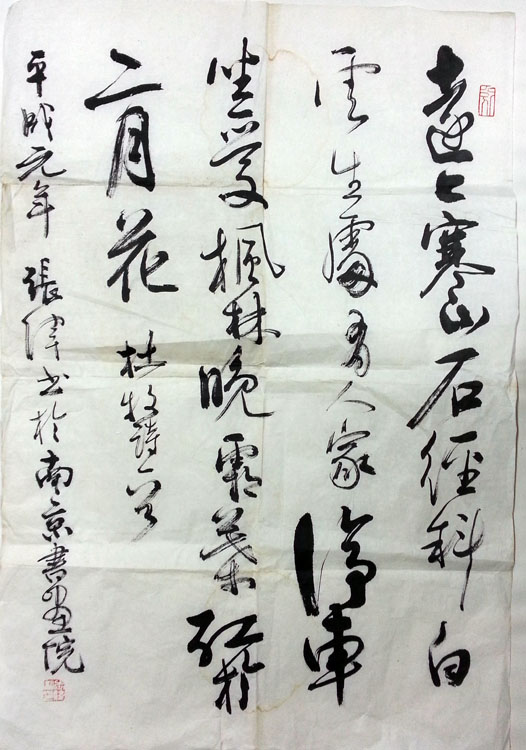 遠上寒山石徑斜白
雲生處有人家停車
坐愛楓林晚霜葉紅於
二月花 杜牧詩一首
平成元年 張書於南京書畫院